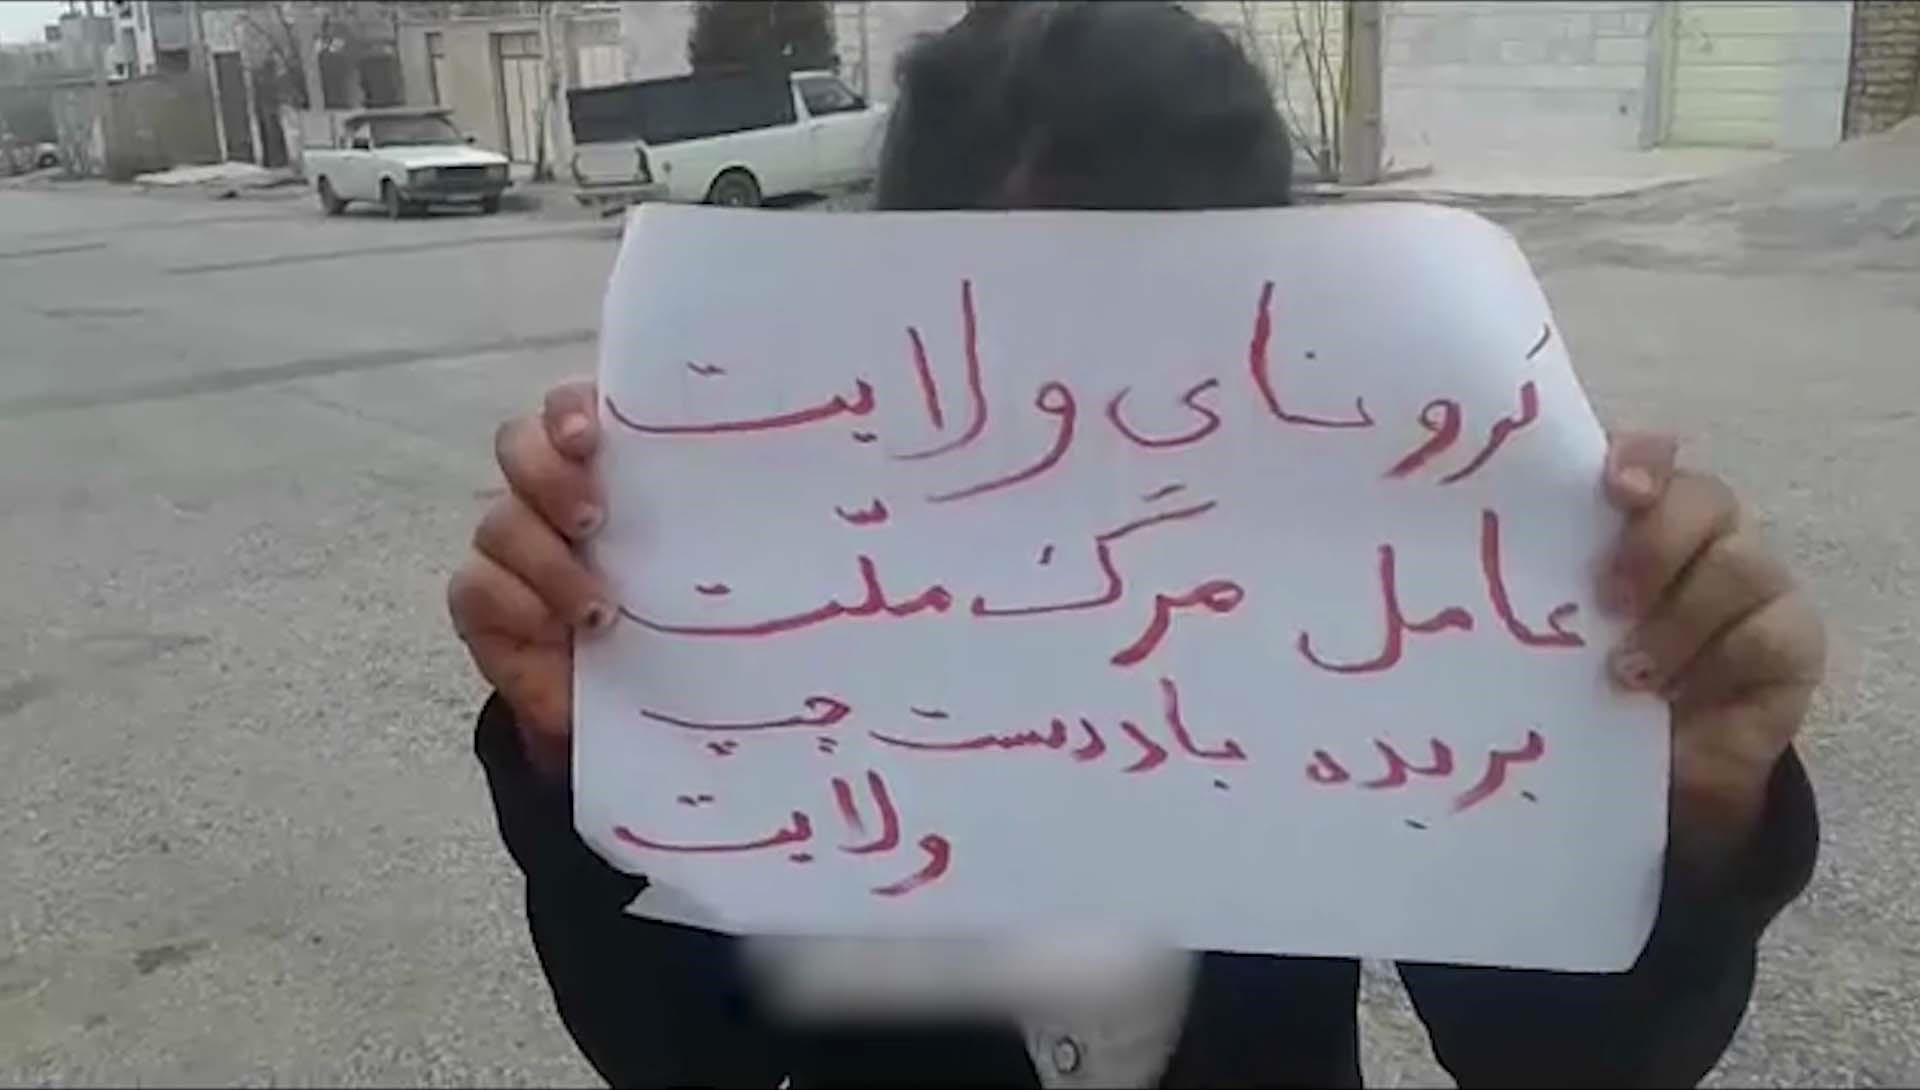 کرونای ولایت
عامل مرگ ملّت
بریده باد دست چپ
ولایت